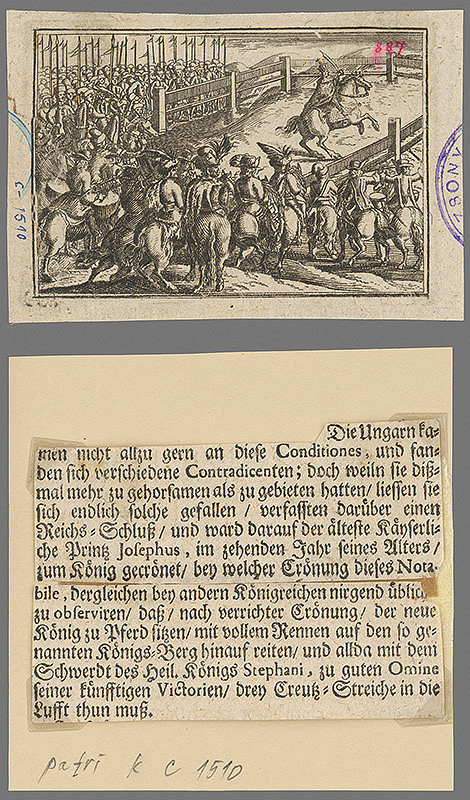 687
c-1510
Die Ungarn ka-
men nicht allzu gern an diese Conditiones, und fan-
den sich verschiedene Contradicenten; doch weiln sie diß-
mal mehr zu gehorsamen als zu gebieten hatten/ liessen sie
sich endlich solche gefallen / verfassten darüber einen
Reichs-Schluß/ und ward darauf der älteste Käyserli-
che Printz Josephus, im zehenden Jahr seines Alters/
zum König gecrönet/ bey welcher Crönung dieses Nota-
bile, dergleichen bey andern Königreichen nirgend üblich
zu observiren/ daß/ nach verrichter Crönung/ der neue
König zu Pferd sitzen/ mit vollem Rennen auf den so ge-
nannten Königs-Berg hinauf reiten/ und allda mit dem
Schwerdt des Heil. Königs Stephani, zu guten Omine
seiner künfftigen Victorien/ drey Creutz-Streiche in die
Lufft thun muß.
patří k C 1510